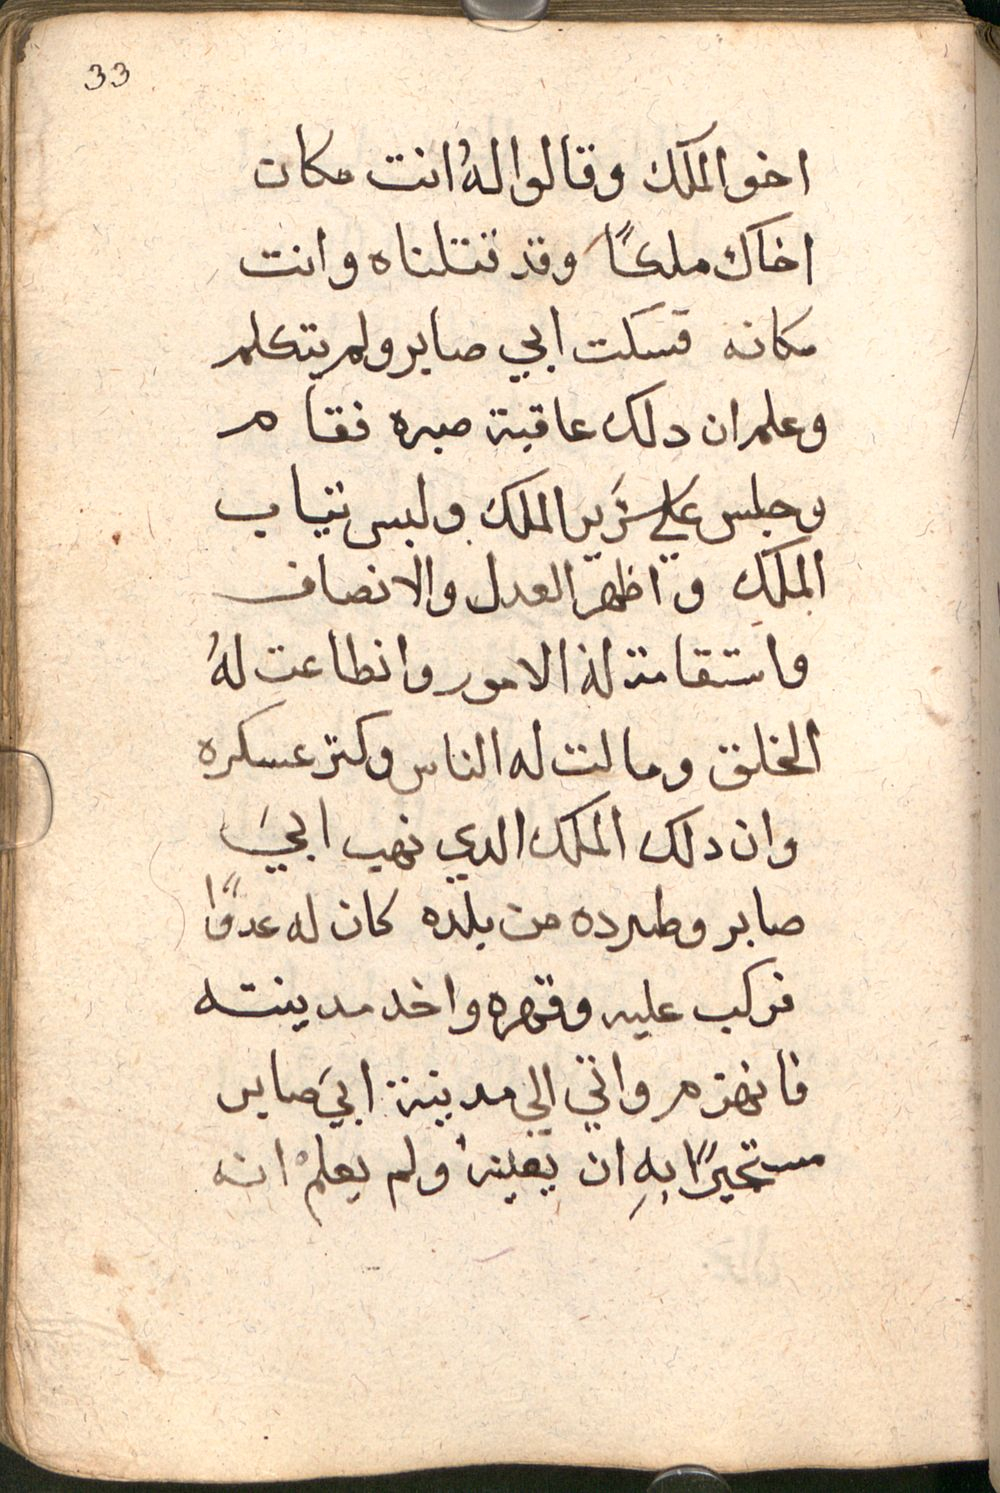 33
اخو الملك وقالوا لهُ انت مكان
اخاك ملكًا وقد قتلناه وانت
مكانه فسكت ابي صابر ولم يتكلم
وعلم ان دلك عاقبة صبره فقام
وجلس علي سَرير الملك ولبس تياب
الملك واظهر العدل والانصاف
واستقامة له الامور وانطاعت لهُ
الخلق ومالت له الناس وكتر عسكره
وان دلك الملك الدي نهب ابيَ
صابر وطرده من بلده كان له عدوًا
فركب عليه وقهره واخد مدينته
فانهزم واتي الي مدينة ابيَ صابر
مستجيرًا بهِ ان يعينهُ ولم يعلمْ انه